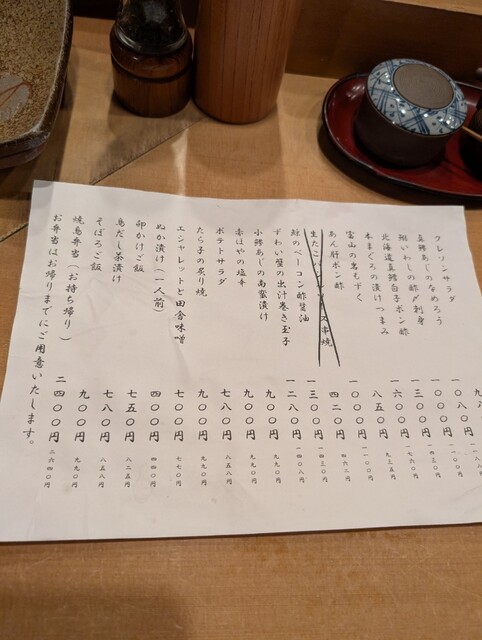 クレソンサラダ
真鯵あじのなめろう 九八
細いわしの酢〆刺身 一〇八〇
北海道真鱈白子ポン酢 一三〇〇円 一四三〇円
本まぐろの漬けつまみ 一六〇〇円 一七六〇円
富山の岩もずく 八五〇円 九三五円
あん肝ポン酢 一〇〇〇円 一一〇〇円
生たこ ス串焼 四二〇円 四六二円
鯨のベーコン酢醤油 一三〇〇円 一四三〇円
ずわい蟹の出汁巻き玉子 一二八〇円 一四〇八円
小鯵あじの南蛮漬け 九〇〇円 九九〇円
赤ほやの塩辛 九〇〇円 九九〇円
ポテトサラダ 七八〇円 八五八円
たら子の炙り焼 九〇〇円 九九〇円
エシャレットと田舎味噌 七〇〇円 七七〇円
ぬか漬け（一人前） 四〇〇円 四四〇円
卵かけご飯 七五〇円 八二五円
鳥だし茶漬け 七八〇円 八五八円
そぼろご飯 九〇〇円 九九〇円
焼鳥弁当（お持ち帰り） 二四〇〇円 二六四〇円
お弁当はお帰りまでにご用意いたします。